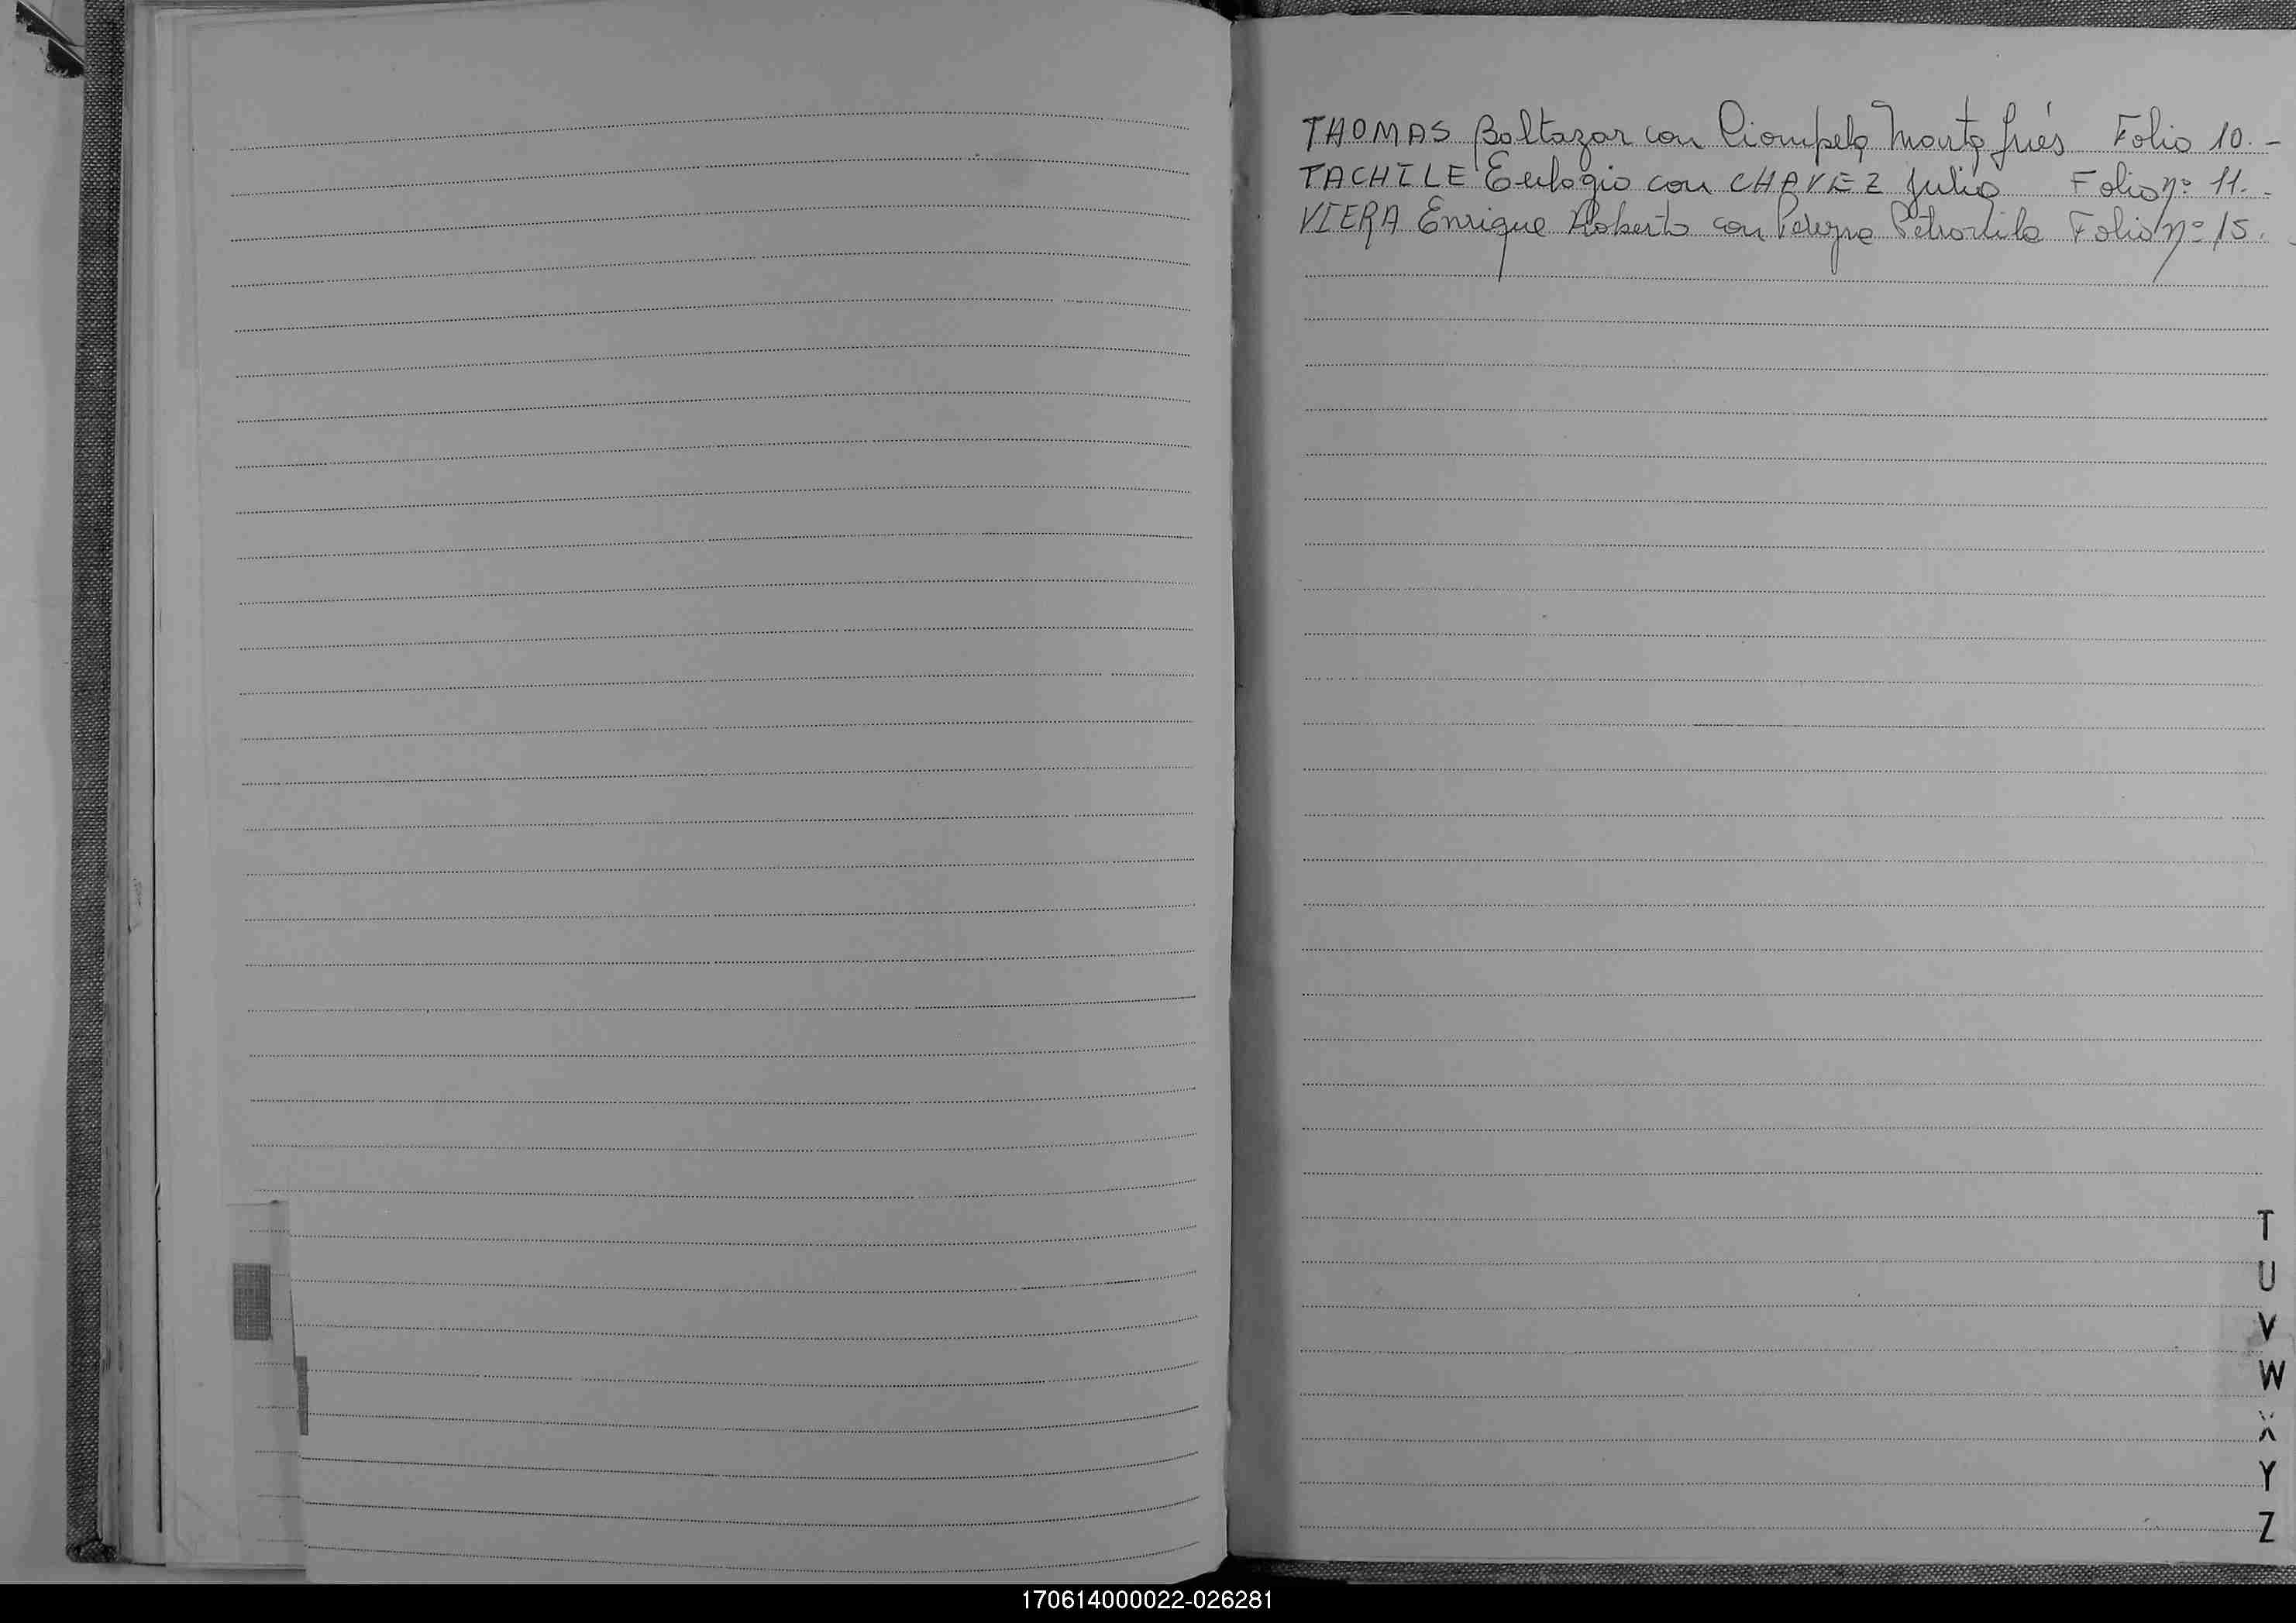 THOMAS Baltazar con Ciompela Marta Inés Folio 10.-
TACHILE Eulogio con CHAVEZ Julia Folio nº 11.-
VIERA Enrique Roberto con Pereyra Petronila Folio nº 15.
T
U
V
W
X
Y
Z
170614000022-026281